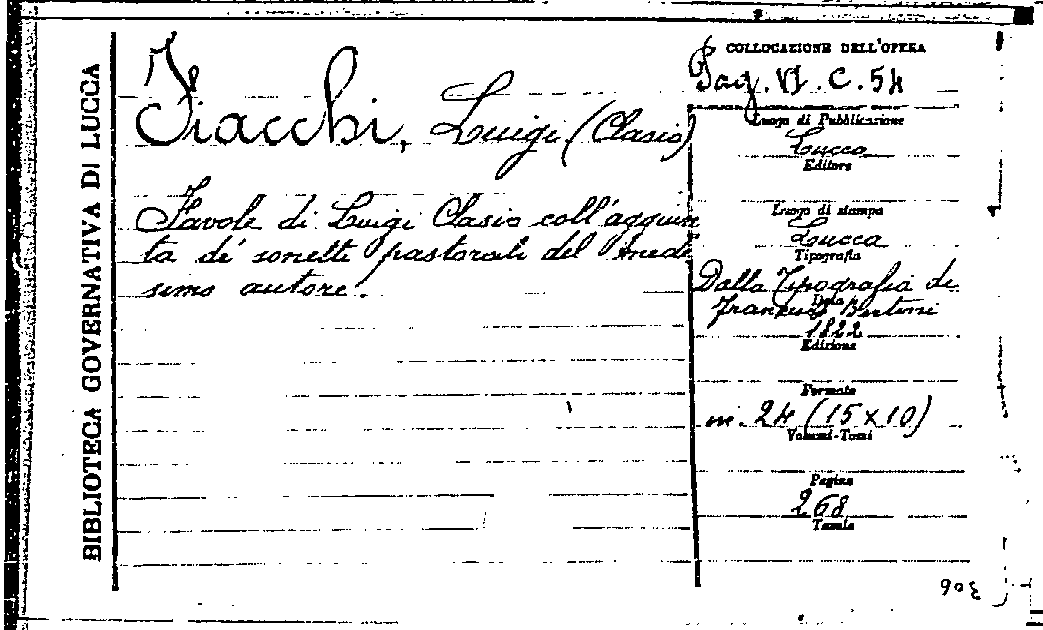 BIBLIOTECA GOVERNATIVA DI LUCCA
Fiacchi, Luigi (Clasio)
Favole di Luigi Clasio coll'aggiun
ta de' sonetti pastorali del mede
simo autore.
COLLOCAZIONE DELL'OPERA
Pag. VI. C. 54
Luogo di Pubblicazione
Lucca
Editore
Luogo di stampa
Lucca
Tipografia
Dalla Tipografia di
Francesco Bertini
Data
1822
Edizione
Formato
in. 24 (15 x 10)
Volumi-Tomi
Pagine
268
Tavole
306